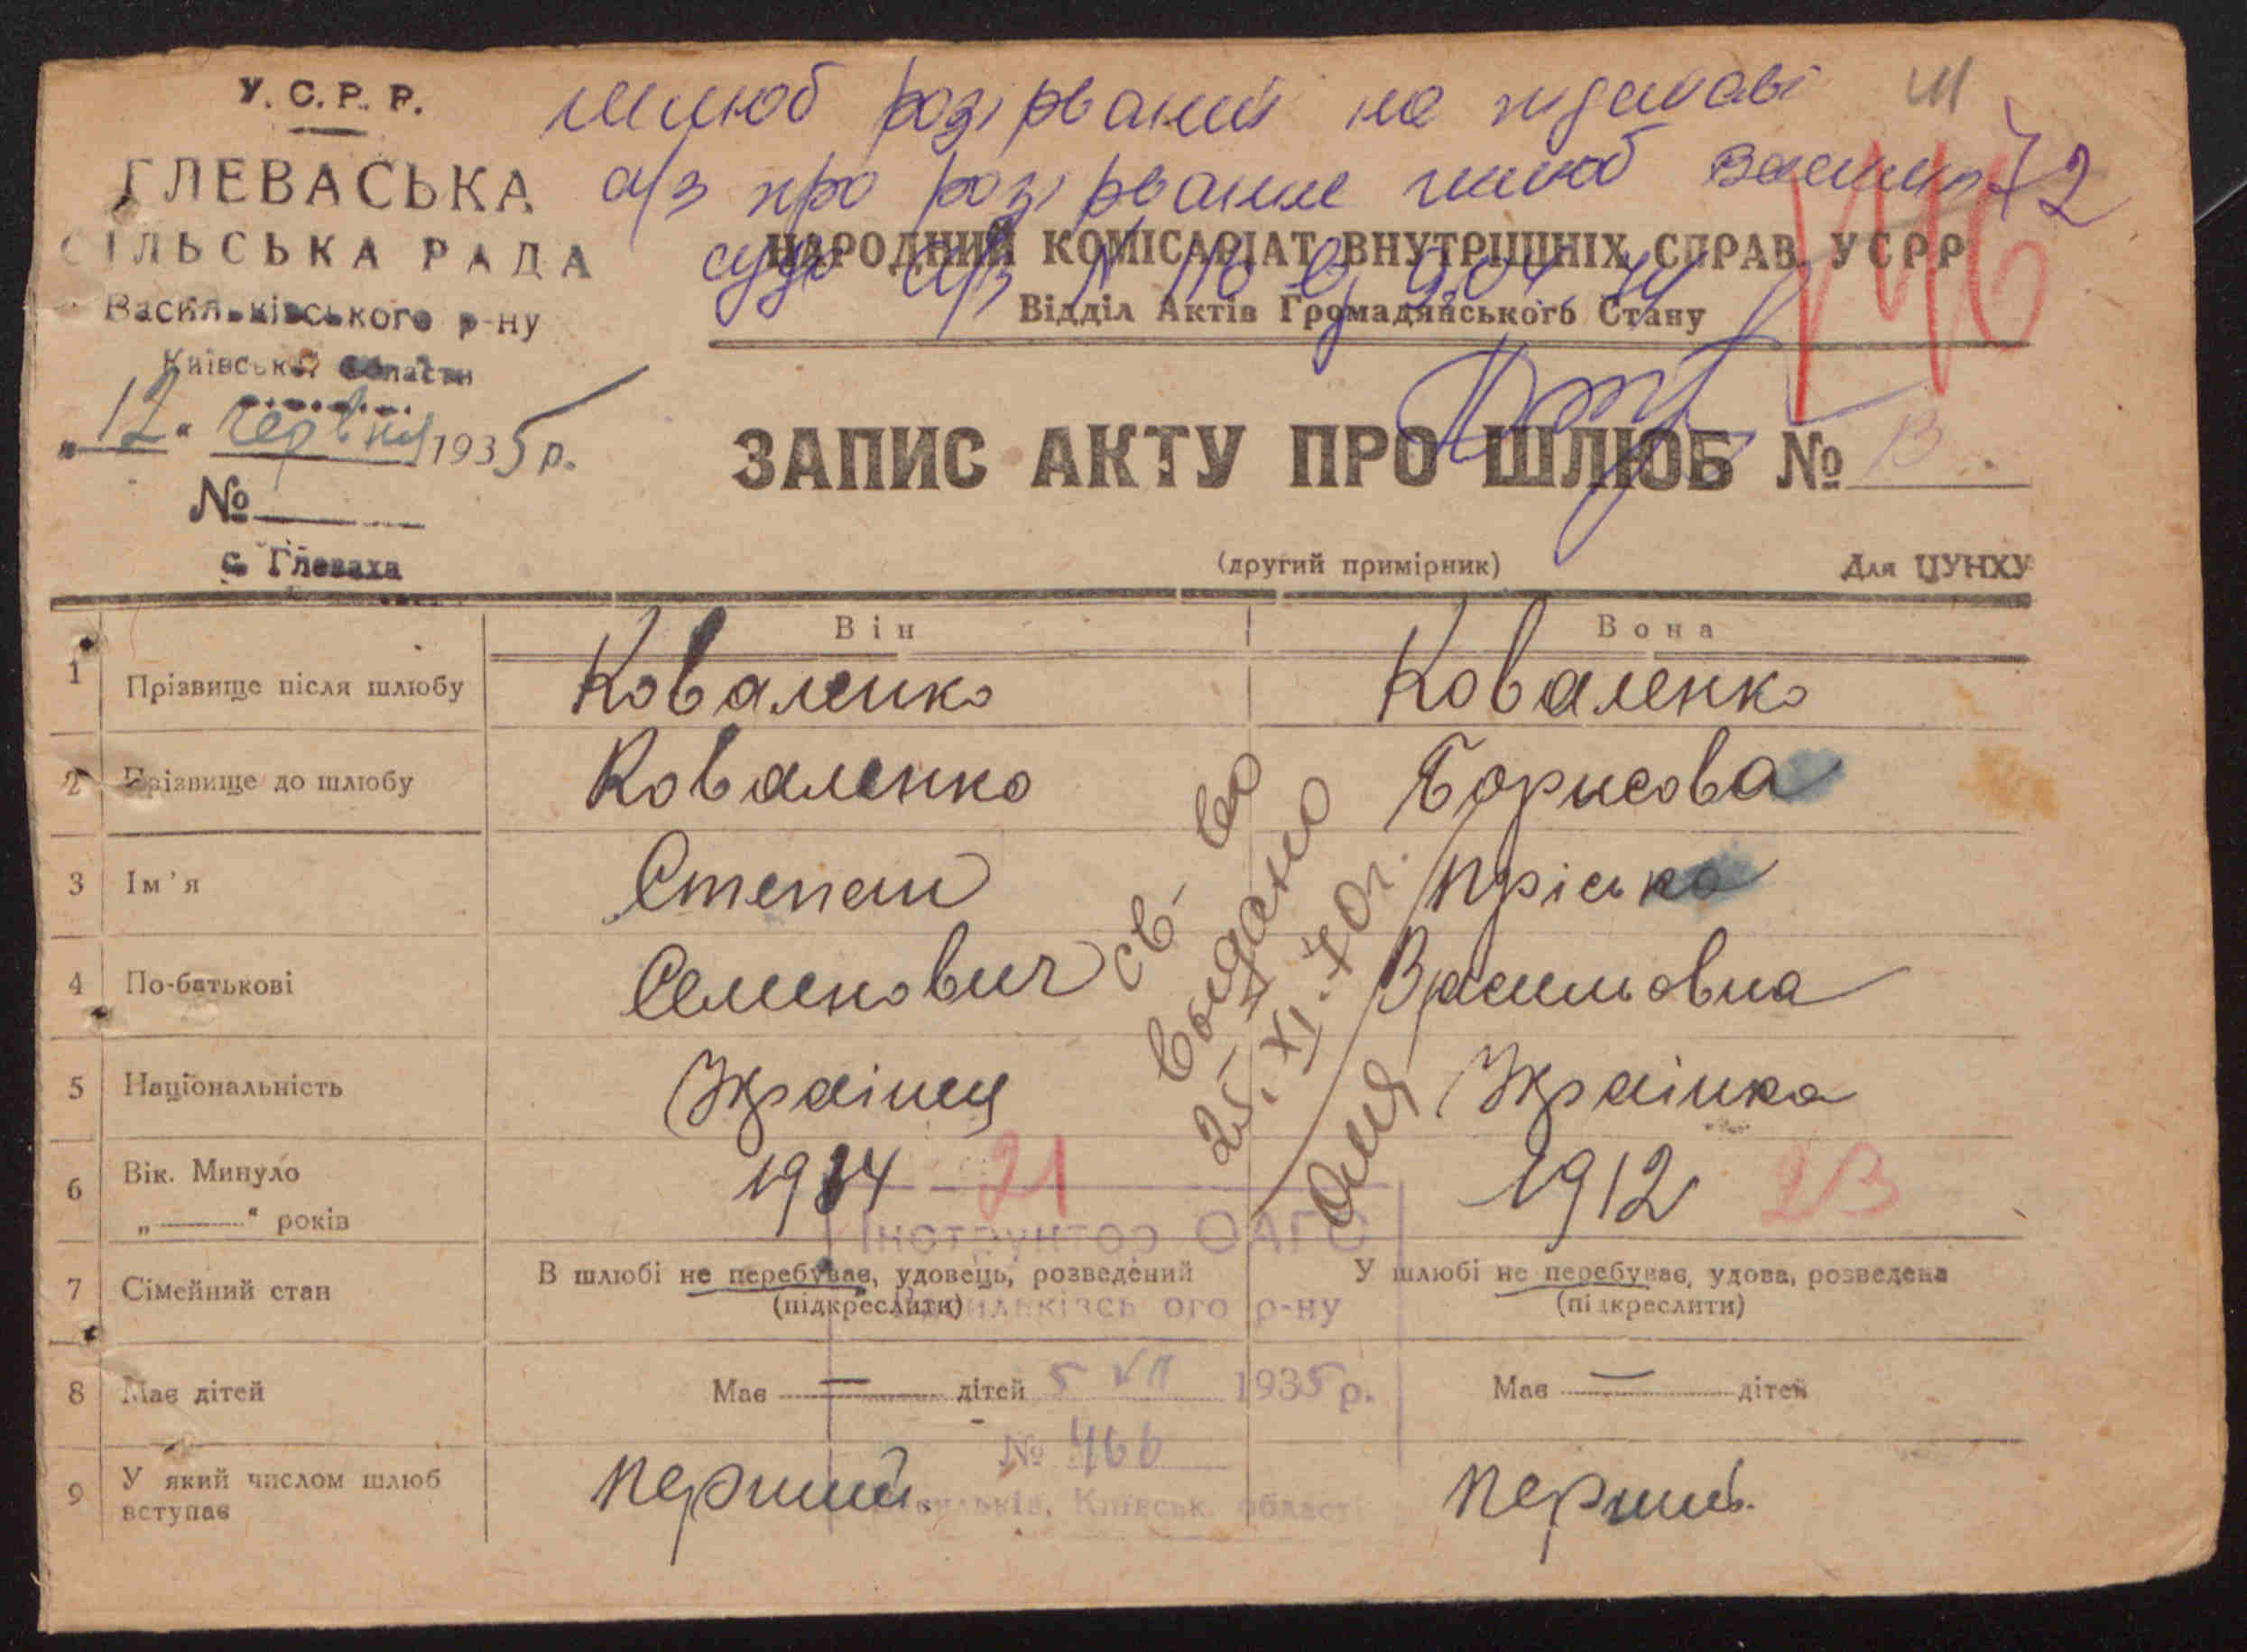 У.С.Р.Р.
ГЛЕВАСЬКА
СІЛЬСЬКА РАДА
Васильківського р-ну
Київської области
„12" червня 1935 р.
№
с. Глеваха
шлюб розірваний на підставі
а/з про розірвання шлюб
суду а/з № 116
72
146
НАРОДНИЙ КОМІСАРІАТ ВНУТРІШНІХ СПРАВ УСРР
Відділ Актів Громадянського Стану
ЗАПИС АКТУ ПРО ШЛЮБ № 13
(другий примірник) Для ЦУНХУ
Він Вона
1 Прізвище після шлюбу Коваленко Коваленко
2 Прізвище до шлюбу Коваленко Борисова
3 Ім'я Степан Пріська
4 По-батькові Семенович Васильовна
5 Національність Украінец Украінка
6 Вік. Минуло „ " років 1914 21 1912 23
7 Сімейний стан В шлюбі не перебуває, удовець, розведений (підкреслити) У шлюбі не перебуває, удова, розведена (підкреслити)
8 Має дітей Має — дітей Має — дітей
9 У який числом шлюб вступає Перший Перший
св-во
выдано
25.XI.70г.
Інструктор ОАГС
Васильківського р-ну
5 VII 1935 р.
№ 466
Васильків, Київськ. області